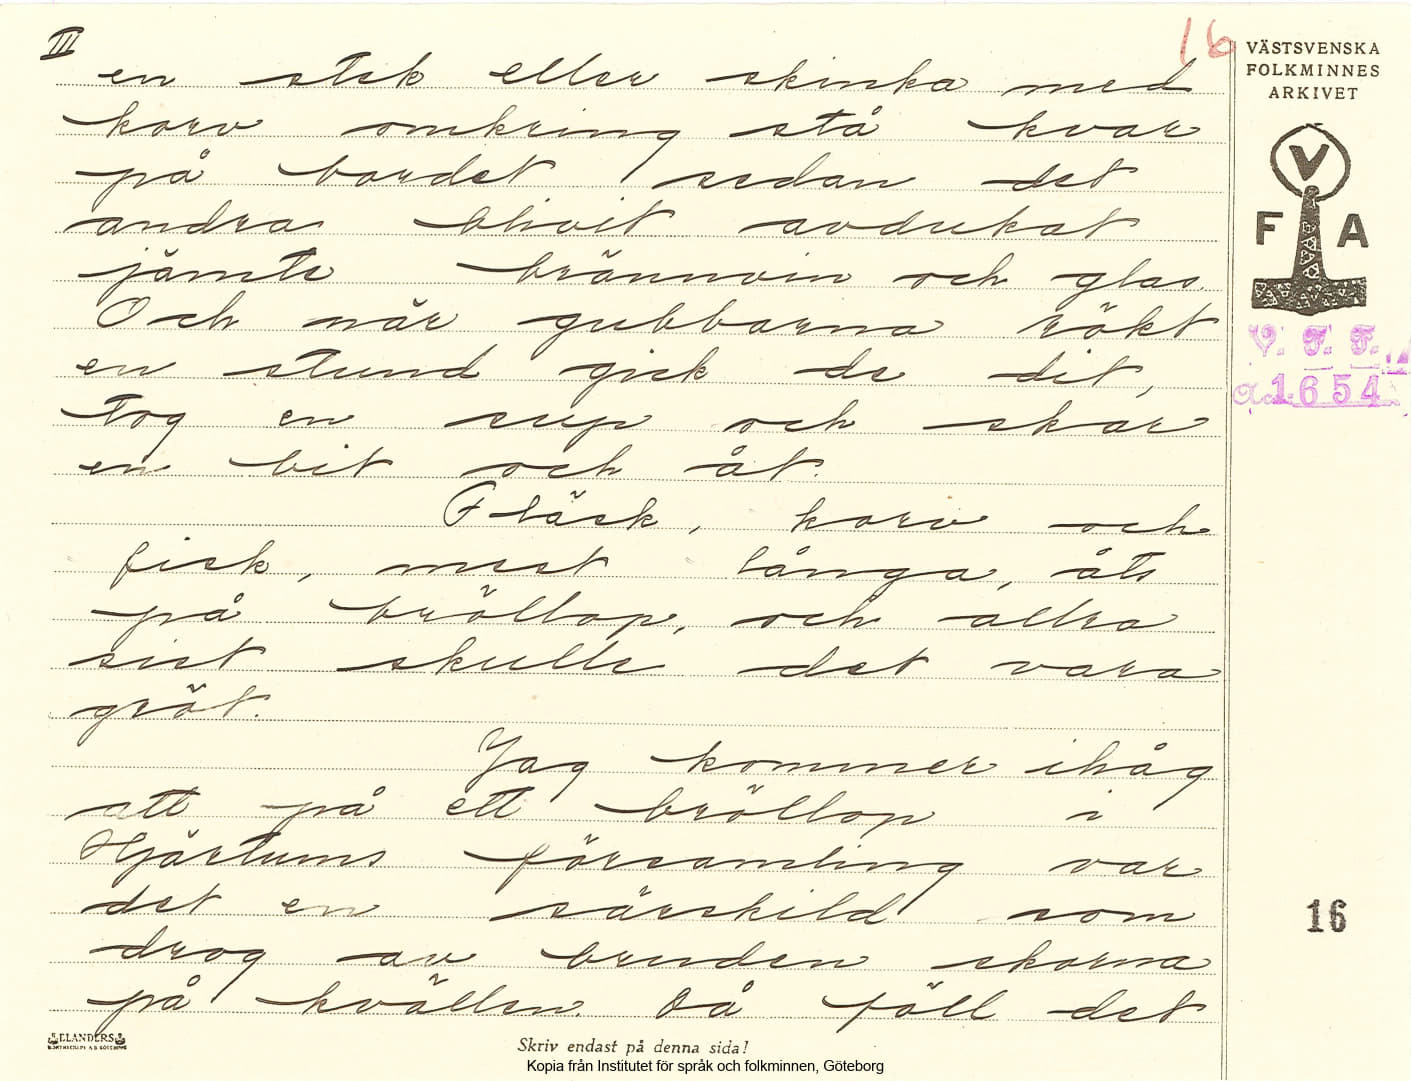 III
16
en stek eller skinka med
korv omkring stå kvar
på bordet sedan det
andra blivit avdukat
jämte brännvin och glas.
Och när gubbarna rökt
en stund gick de dit,
tog en sup och skar
en bit och åt.
Fläsk, korv och
fisk, mest långa, åts
på bröllop, och allra
sist skulle det vara
gröt.
Jag kommer ihåg
att på ett bröllop i
Hjärtums församling var
det en särskild som
drog av bruden skorna
på kvällen. Då föll det
VÄSTSVENSKA
FOLKMINNES
ARKIVET
V
F A
V. F. F.
a. 1654
16
ELANDERS
Skriv endast på denna sida!
Kopia från Institutet för språk och folkminnen, Göteborg